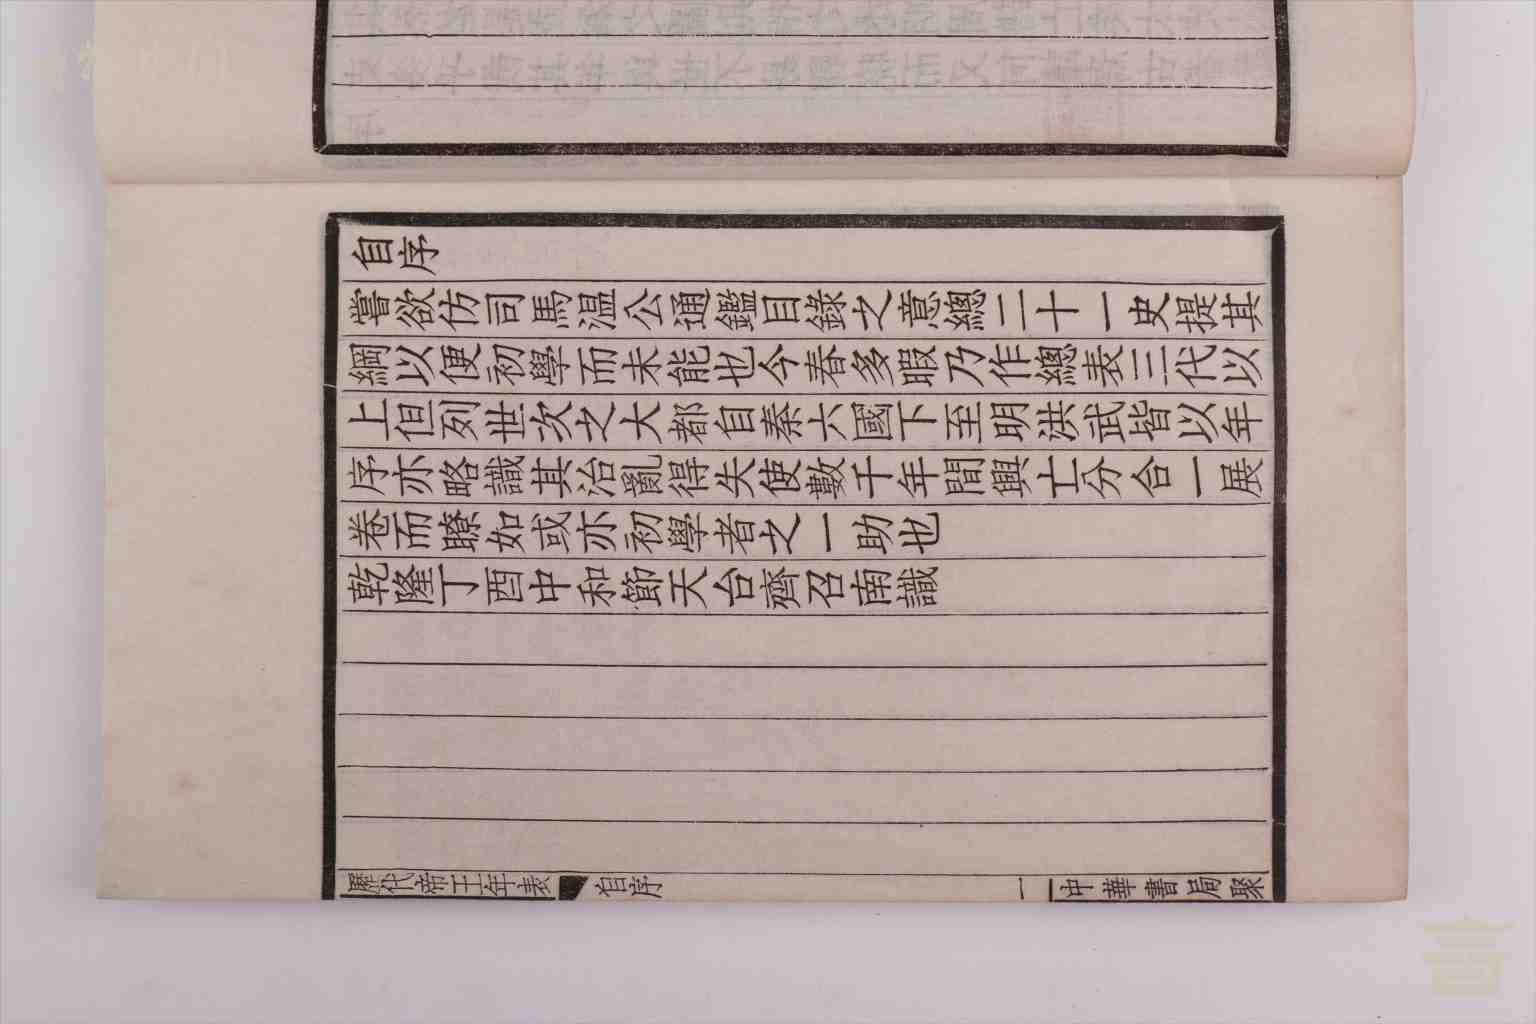 自序
嘗欲仿司馬温公通鑑目錄之意總二十一史提其
綱以便初學而未能也今春多暇乃作總表三代以
上但列世次之大都自秦六國下至明洪武皆以年
序亦略識其治亂得失使數千年間興亡分合一展
卷而瞭如或亦初學者之一助也
乾隆丁酉中和節天台齊召南識
歷代帝王年表 自序 一 中華書局聚